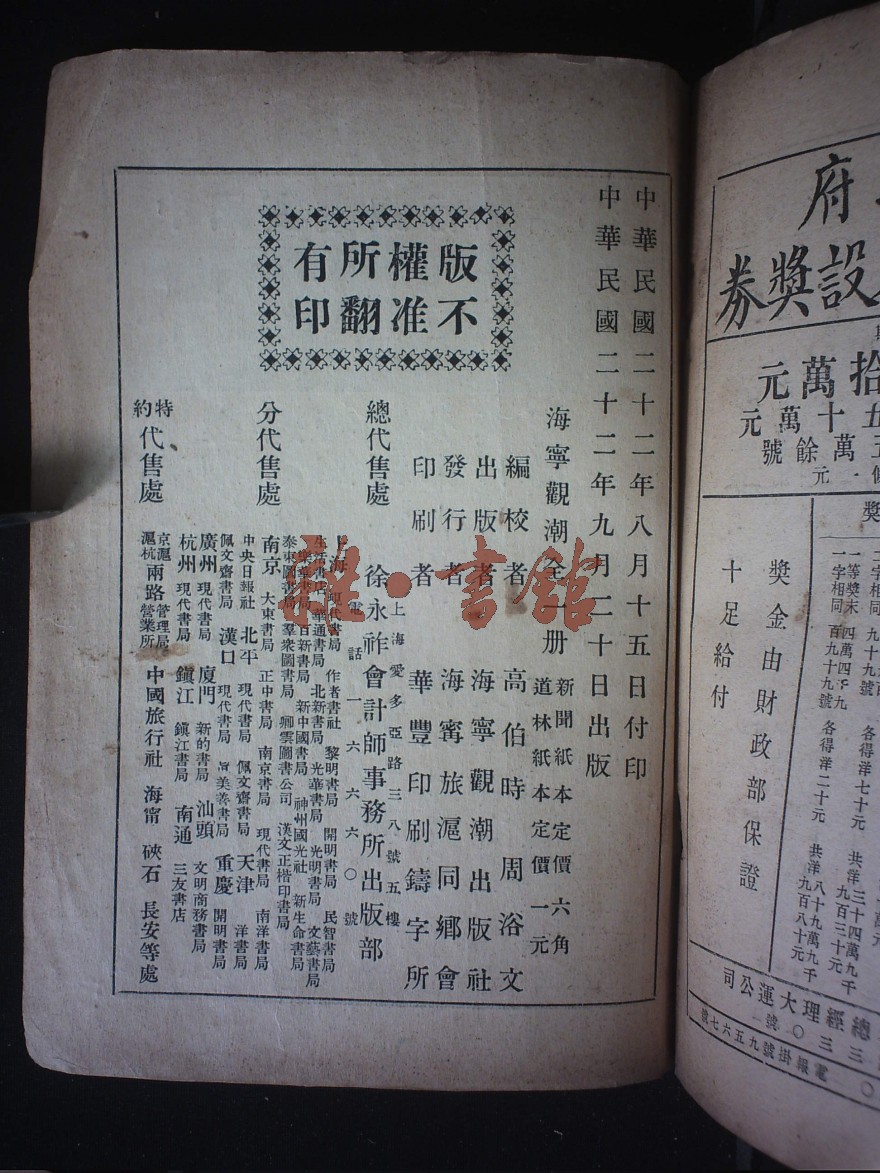 中華民國二十二年八月十五日付印
中華民國二十二年九月二十日出版
版權所有
不准翻印
海寧觀潮全一册
新聞紙本定價六角
道林紙本定價一元
編校者 高伯時 周浴文
出版者 海寧觀潮出版社
發行者 海寗旅滬同鄉會
印刷者 華豐印刷鑄字所
總代售處 徐永祚會計師事務所出版部
上海愛多亞路三八號五樓
電話一六六六〇號
分代售處
上海 現代書局 作者書社 黎明書局 開明書局 民智書局
生活書店 華通書局 北新書局 光華書局 光明書局 文藝書局
百新書局 新中國書局 神州國光社 新生命書局
泰東圖書局 羣衆圖書局 卿雲圖書公司 漢文正楷印書局
南京 大東書局 正中書局 南京書局 現代書局 南洋書局
中央日報社 北平 現代書局 佩文齋書局 天津 洋書局
佩文齋書局 漢口 現代書局 美善書局 重慶 開明書局
廣州 現代書局 廈門 新的書局 汕頭 文明商務書局
杭州 現代書局 鎭江 鎭江書局 南通 三友書店
特約代售處
京滬滬杭兩路管理局營業所 中國旅行社 海甯 硤石 長安等處
雅·書館
府
設獎券
拾萬元
五十萬元
五萬餘號
一元
獎
獎金由財政部保證
十足給付
二字相同
一字相同
一等獎末
四萬四千九
百九十九號
各得洋七十元
各得洋二十元
共洋三十四萬九千
九百三十元
共洋八十九萬九千
九百八十元
總經理大運公司
三三〇號
電報掛號九五六七號